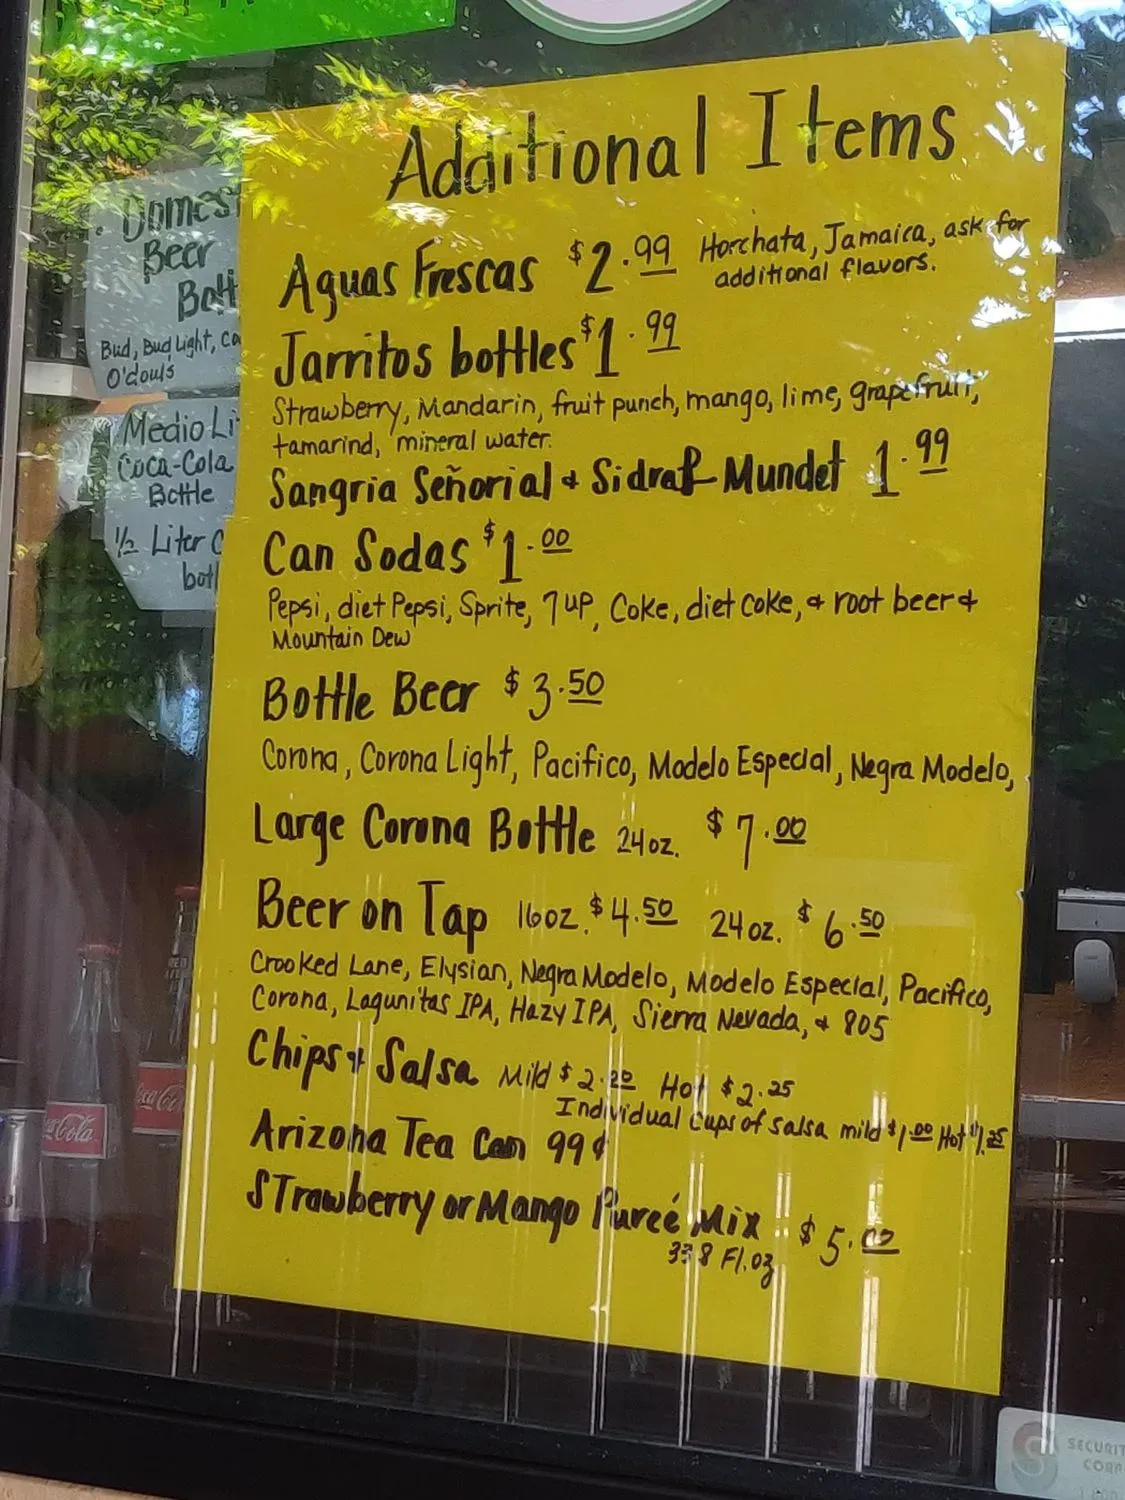 Additional Items
Aguas Frescas $2.99 Horchata, Jamaica, ask for
additional flavors.
Jarritos bottles $1.99
Strawberry, Mandarin, fruit punch, mango, lime, grapefruit,
tamarind, mineral water.
Sangria Señorial & Sidral Mundet 1.99
Can Sodas $1.00
Pepsi, diet Pepsi, Sprite, 7up, Coke, diet coke, & root beer &
Mountain Dew
Bottle Beer $3.50
Corona, Corona Light, Pacifico, Modelo Especial, Negra Modelo,
Large Corona Bottle 24oz. $7.00
Beer on Tap 16oz. $4.50 24oz. $6.50
Crooked Lane, Elysian, Negra Modelo, Modelo Especial, Pacifico,
Corona, Lagunitas IPA, Hazy IPA, Sierra Nevada, & 805
Chips & Salsa Mild $2.00 Hot $2.25
Individual cups of salsa mild $1.00 Hot $1.25
Arizona Tea Can 99¢
STrawberry or Mango Pureé Mix $5.00
33.8 Fl.oz
Domes
Beer
Bott
Bud, Bud Light, Co
O'douls
Medio Li
Coca-Cola
Bottle
1/2 Liter C
bot
Coca-Cola
SECURIT